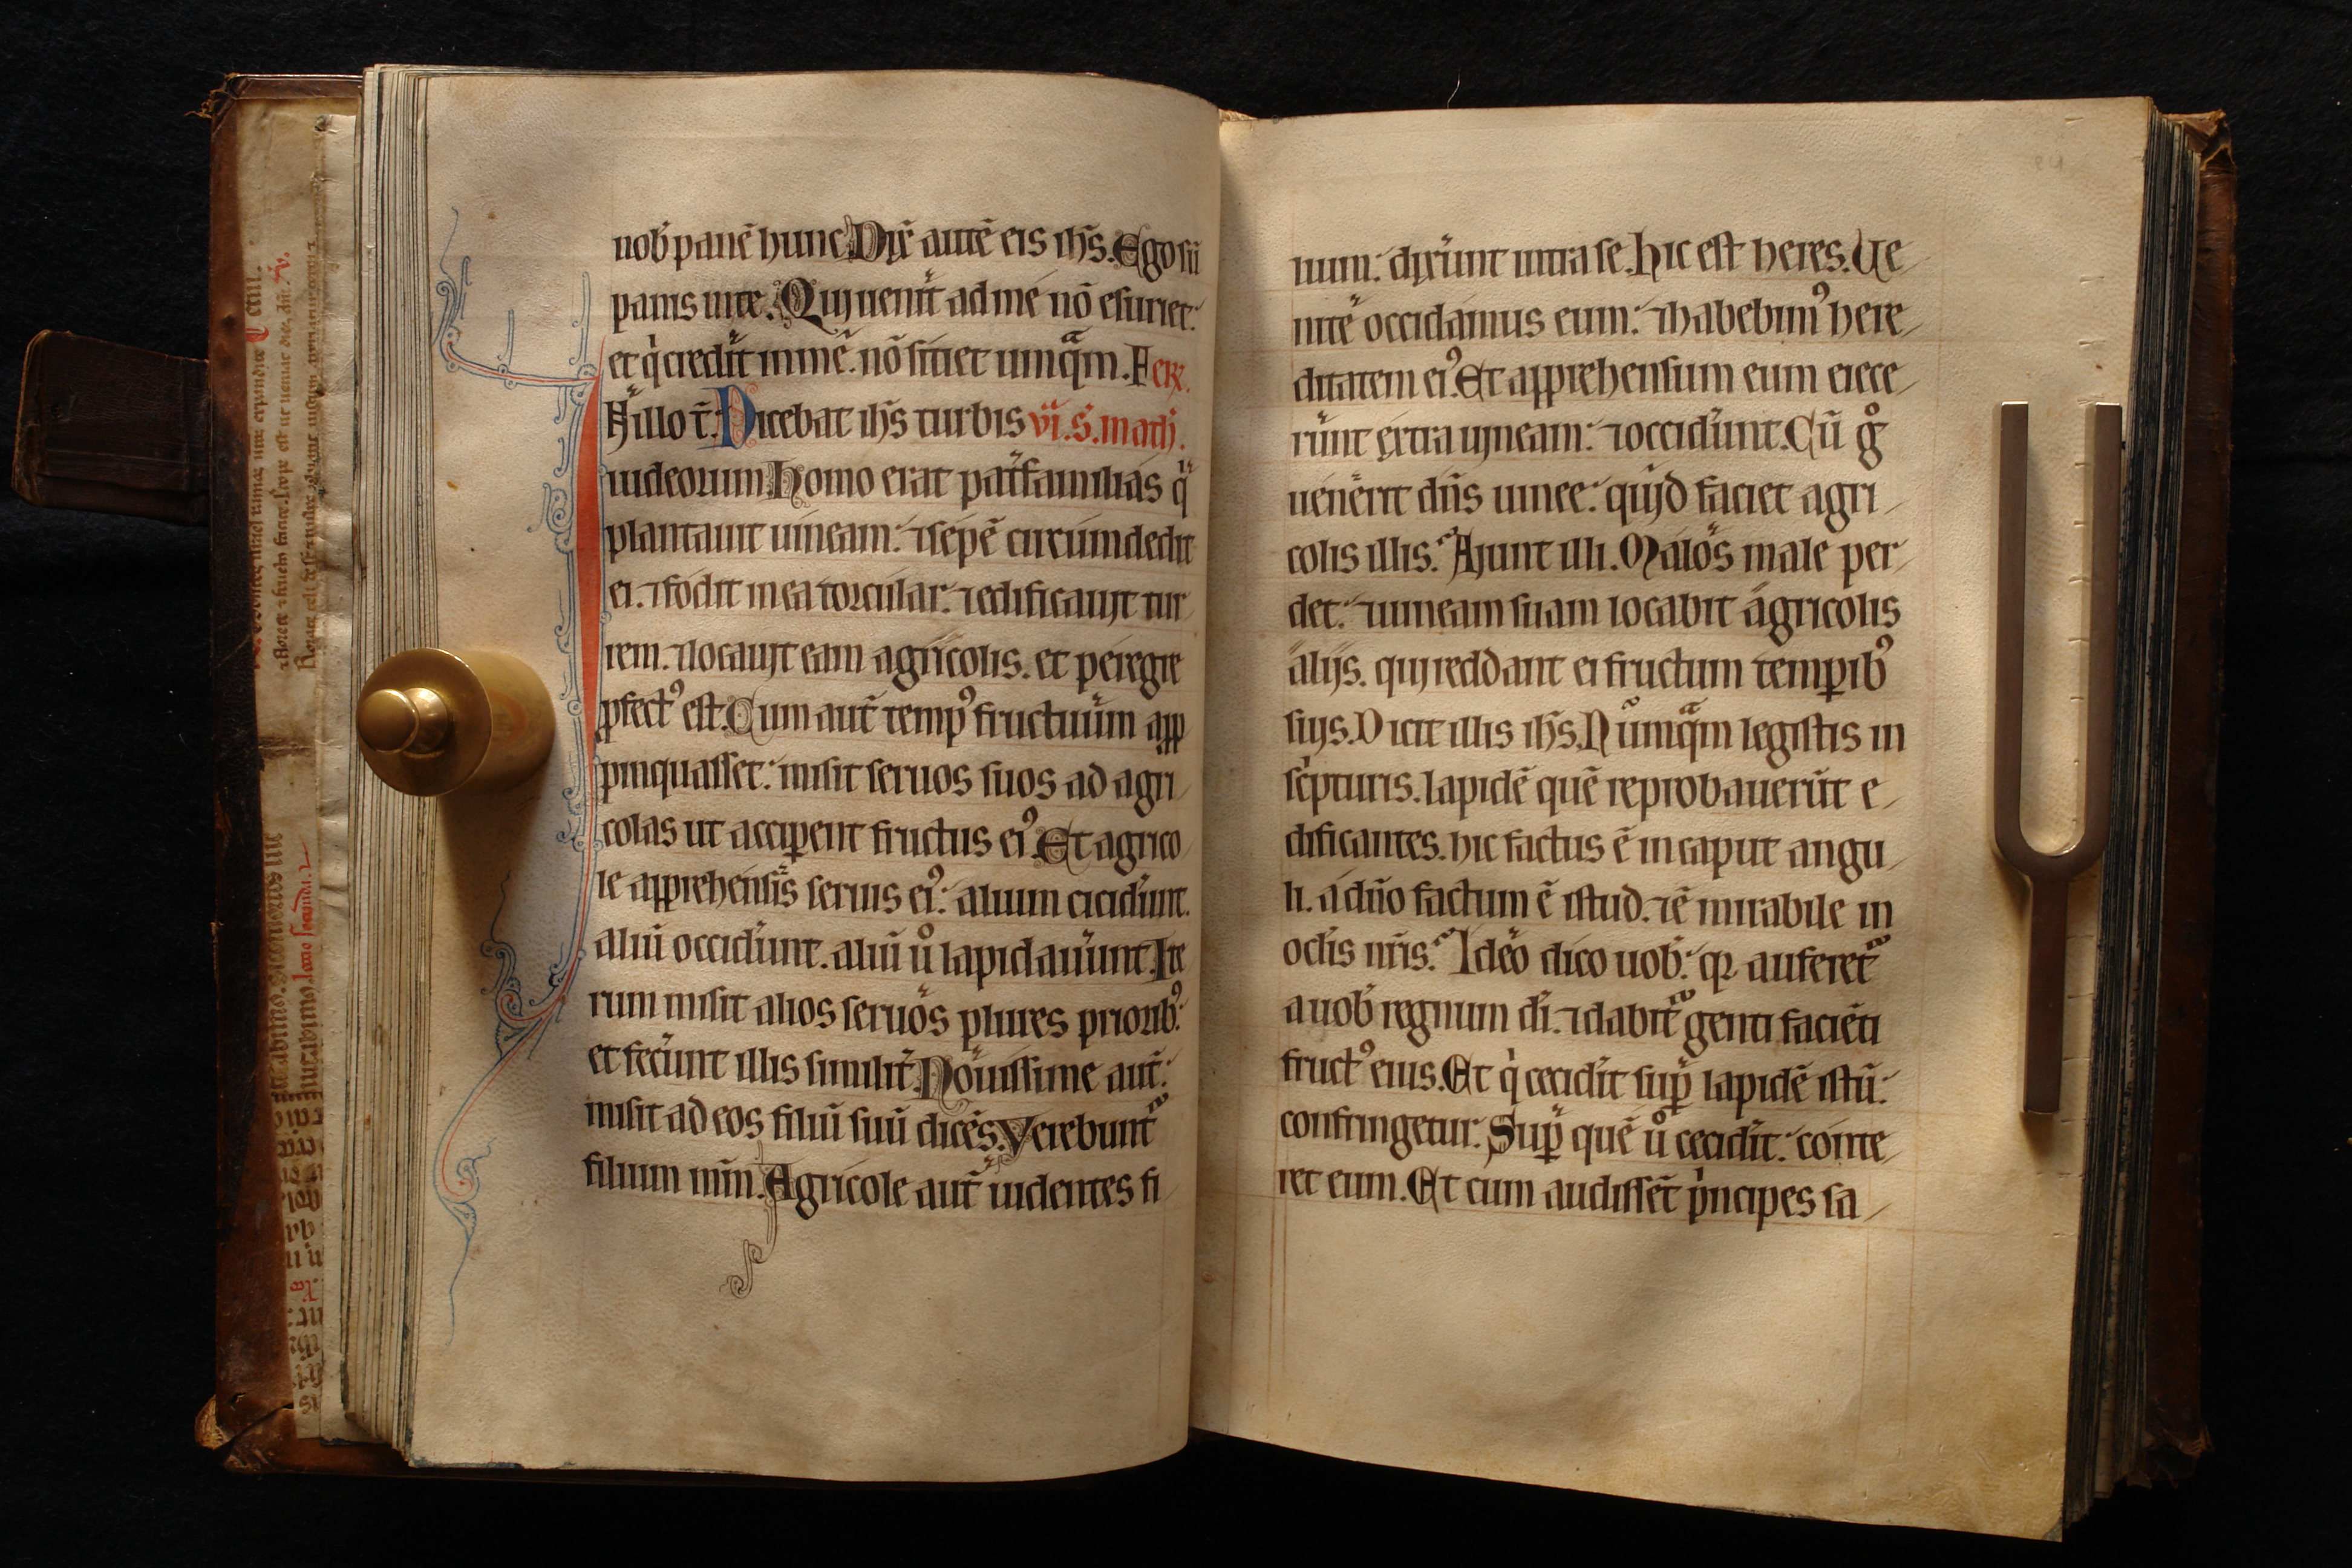 uob̄ panē hunc. Dix̄ autē eis ih̄s. Ego sū
panis uite. Qui uenit̄ ad me nō esuriet:
et q̇ credit̄ in me. nō sitiet umq̄m. Fer.
In illo t̄. Dicebat ih̄s turbis vi. S. math.
iudeorum. Homo erat pat̄familias q̄
plantauit uineam: ⁊ sepē circumdedit
ei. ⁊ fodit in ea torcular: ⁊ edificauit tur
rem. ⁊ locauit eam agricolis. et peregre
ꝓfectꝰ est. Cum aut̄ tempꝰ fructuum aꝓ
pinquasset: misit seruos suos ad agri/
colas ut acciꝑent fructus eiꝰ. Et agrico
le apprehensis̄ seruis eiꝰ: alium cicid̄unt.
aliū occid̄unt. aliū u̇ lapidau̇unt. Ite
rum misit alios seruos plures priorib̄ꝰ:
et fec̄unt illis similit̄. Nouissime aut̄:
misit ad eos filiū suū dicēs. Verebunt̄
filium mm̄. Agricole aut̄ uidentes fi/
lium: dix̄unt intra se. Hic est heres. Ue/
nitē occidamus eum: ⁊ habebimꝰ here/
ditatem eiꝰ. Et apprehensum eum eiece/
r̄unt extra uineam: ⁊ occid̄unt. Cū g̊
uenērit dn̄s uinee: quid faciet agri/
colis illis. Aiunt illi. Malos male per/
det: ⁊ uineam suam locabit agricolis
alijs. qui reddant ei fructum temꝑibꝰ
suis. Dicit illis ih̄s. Nūmq̄m legistis in
sc̄pturis. lapidē quē reprobauerūt e/
dificantes. hic factus ē in caput angu/
li. a dn̄o factum ē istud. ⁊ ē mirabile in
oclis̄ nr̄is. Ideo dico uob̄: qꝛ auferet̄
a uob̄ regnum di̅. ⁊ dabit̄ genti faciēti
fructꝰ eius. Et q̇ cecidit̄ suꝑ lapidē istū:
confringetur. Suꝑ quē u̇ cecidit̄: conte/
ret eum. Et cum audissēt p̄ncipes sa/